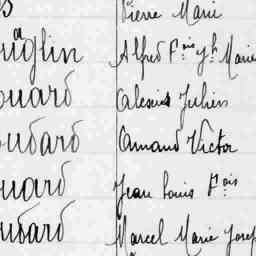 Pierre Marie
uglin Alfred F.ois Jh Marie
ouard Alexis Julien
oubard Armand Victor
uard Jean Louis F.ois
oubard Marcel Marie Josep